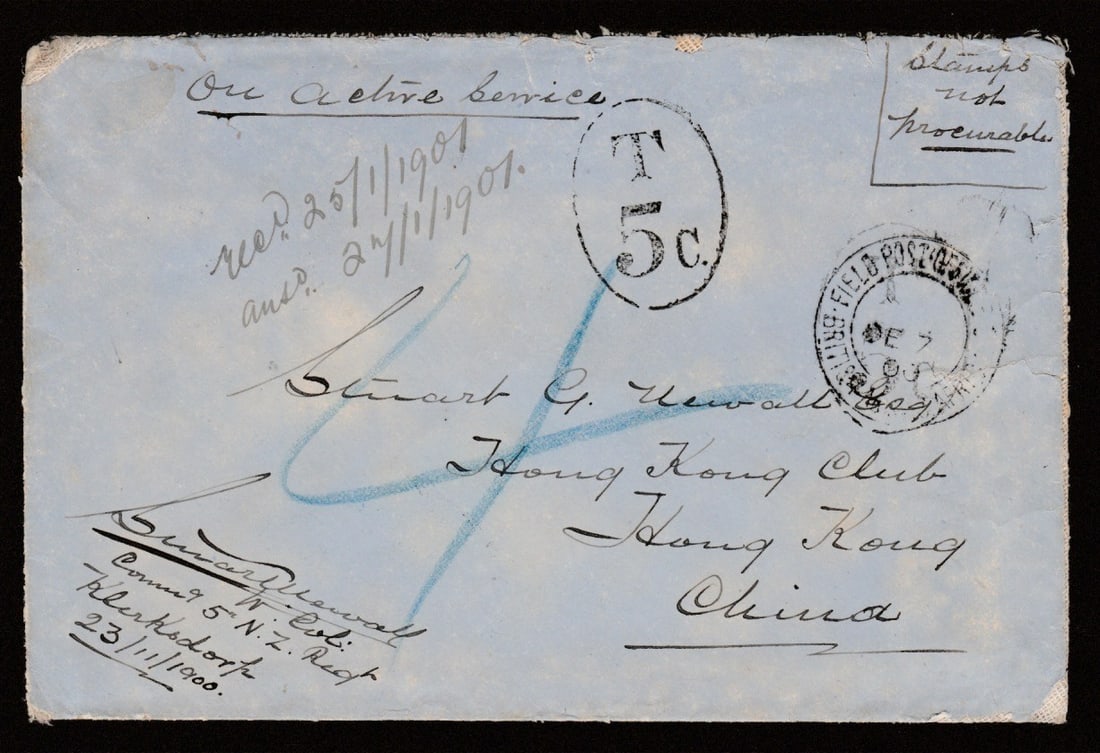 On Active Service.
Stamps
not
procurable
T
5c.
recd. 25/1/1901
ansd. 27/1/1901.
FIELD POST OFFICE BRITISH
DE 7
4
Stuart G. Newall Esq
Hong Kong Club
Hong Kong
China
Stuart Newall
Lt. Col.
Comng 5th N.Z. Regt
Klerksdorp
23/11/1900.